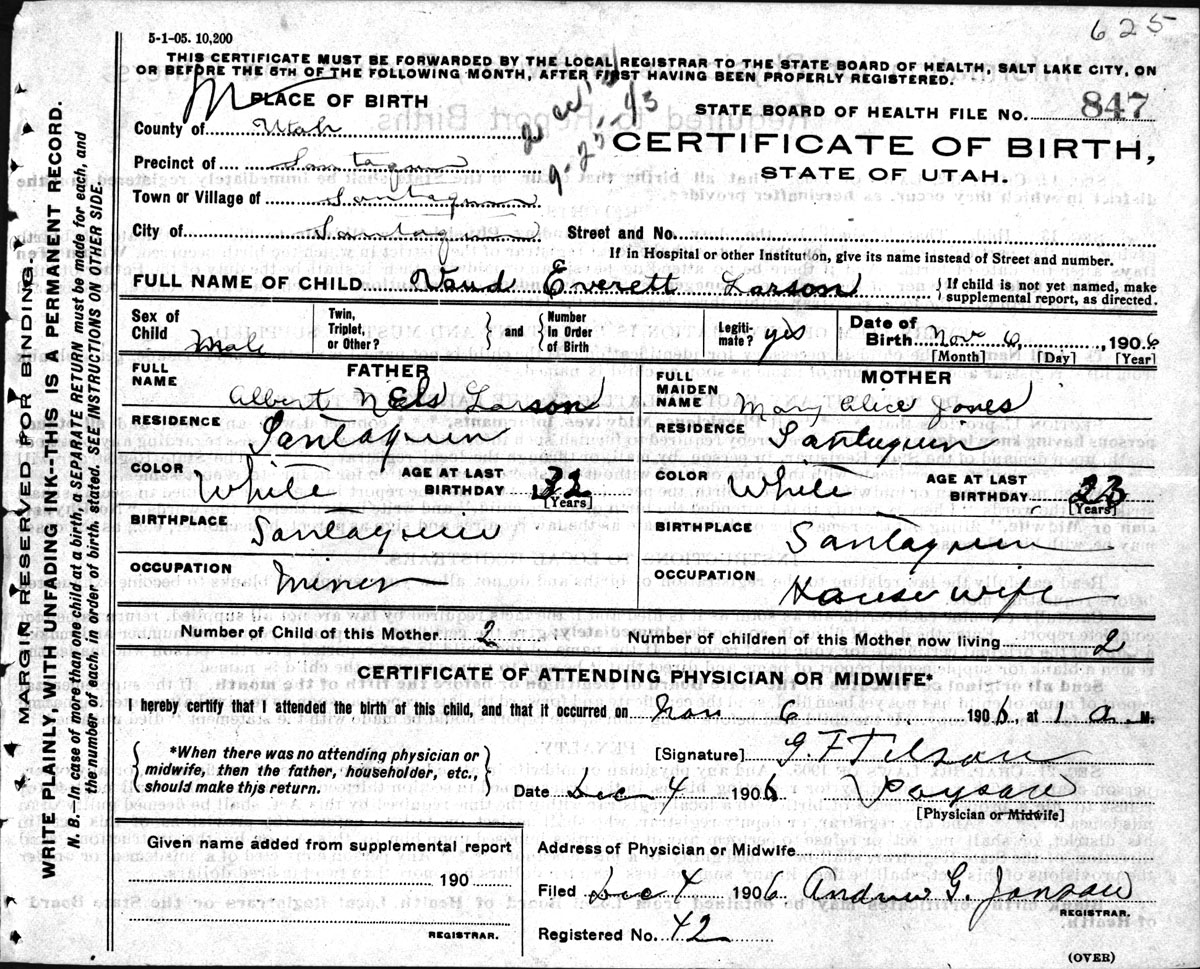 625
5-1-05. 10,200
THIS CERTIFICATE MUST BE FORWARDED BY THE LOCAL REGISTRAR TO THE STATE BOARD OF HEALTH, SALT LAKE CITY, ON
OR BEFORE THE 5TH OF THE FOLLOWING MONTH, AFTER FIRST HAVING BEEN PROPERLY REGISTERED.
PLACE OF BIRTH
STATE BOARD OF HEALTH FILE NO. 847
County of Utah
CERTIFICATE OF BIRTH,
Precinct of Santaquin
STATE OF UTAH.
Town or Village of Santaquin
City of Santaquin Street and No.
If in Hospital or other Institution, give its name instead of Street and number.
FULL NAME OF CHILD Vaud Everett Larson { If child is not yet named, make
supplemental report, as directed.
Sex of Child Male Twin, Triplet, or Other? } and { Number In Order of Birth Legiti-mate? yes Date of Birth Nov 6, 1906
[Month] [Day] [Year]
FATHER
FULL NAME Albert Nels Larson
RESIDENCE Santaquin
COLOR White AGE AT LAST BIRTHDAY 32
[Years]
BIRTHPLACE Santaquin
OCCUPATION Miner
MOTHER
FULL MAIDEN NAME Mary Alice Jones
RESIDENCE Santaquin
COLOR White AGE AT LAST BIRTHDAY 23
[Years]
BIRTHPLACE Santaquin
OCCUPATION House wife
Number of Child of this Mother 2 Number of children of this Mother now living 2
CERTIFICATE OF ATTENDING PHYSICIAN OR MIDWIFE*
I hereby certify that I attended the birth of this child, and that it occurred on Nov 6 1906, at 1 a M.
{ *When there was no attending physician or
midwife, then the father, householder, etc.,
should make this return. }
[Signature] G. F. Tilson
Date Dec 4 1906 Payson
[Physician or Midwife]
Given name added from supplemental report
190
REGISTRAR.
Address of Physician or Midwife
Filed Dec 4 1906 Andrew G. Jonson
REGISTRAR.
Registered No. 42
(OVER)
MARGIN RESERVED FOR BINDING.
WRITE PLAINLY, WITH UNFADING INK--THIS IS A PERMANENT RECORD.
N. B. In case of more than one child at a birth, a SEPARATE RETURN must be made for each, and
the number of each, in order of birth, stated. SEE INSTRUCTIONS ON OTHER SIDE.